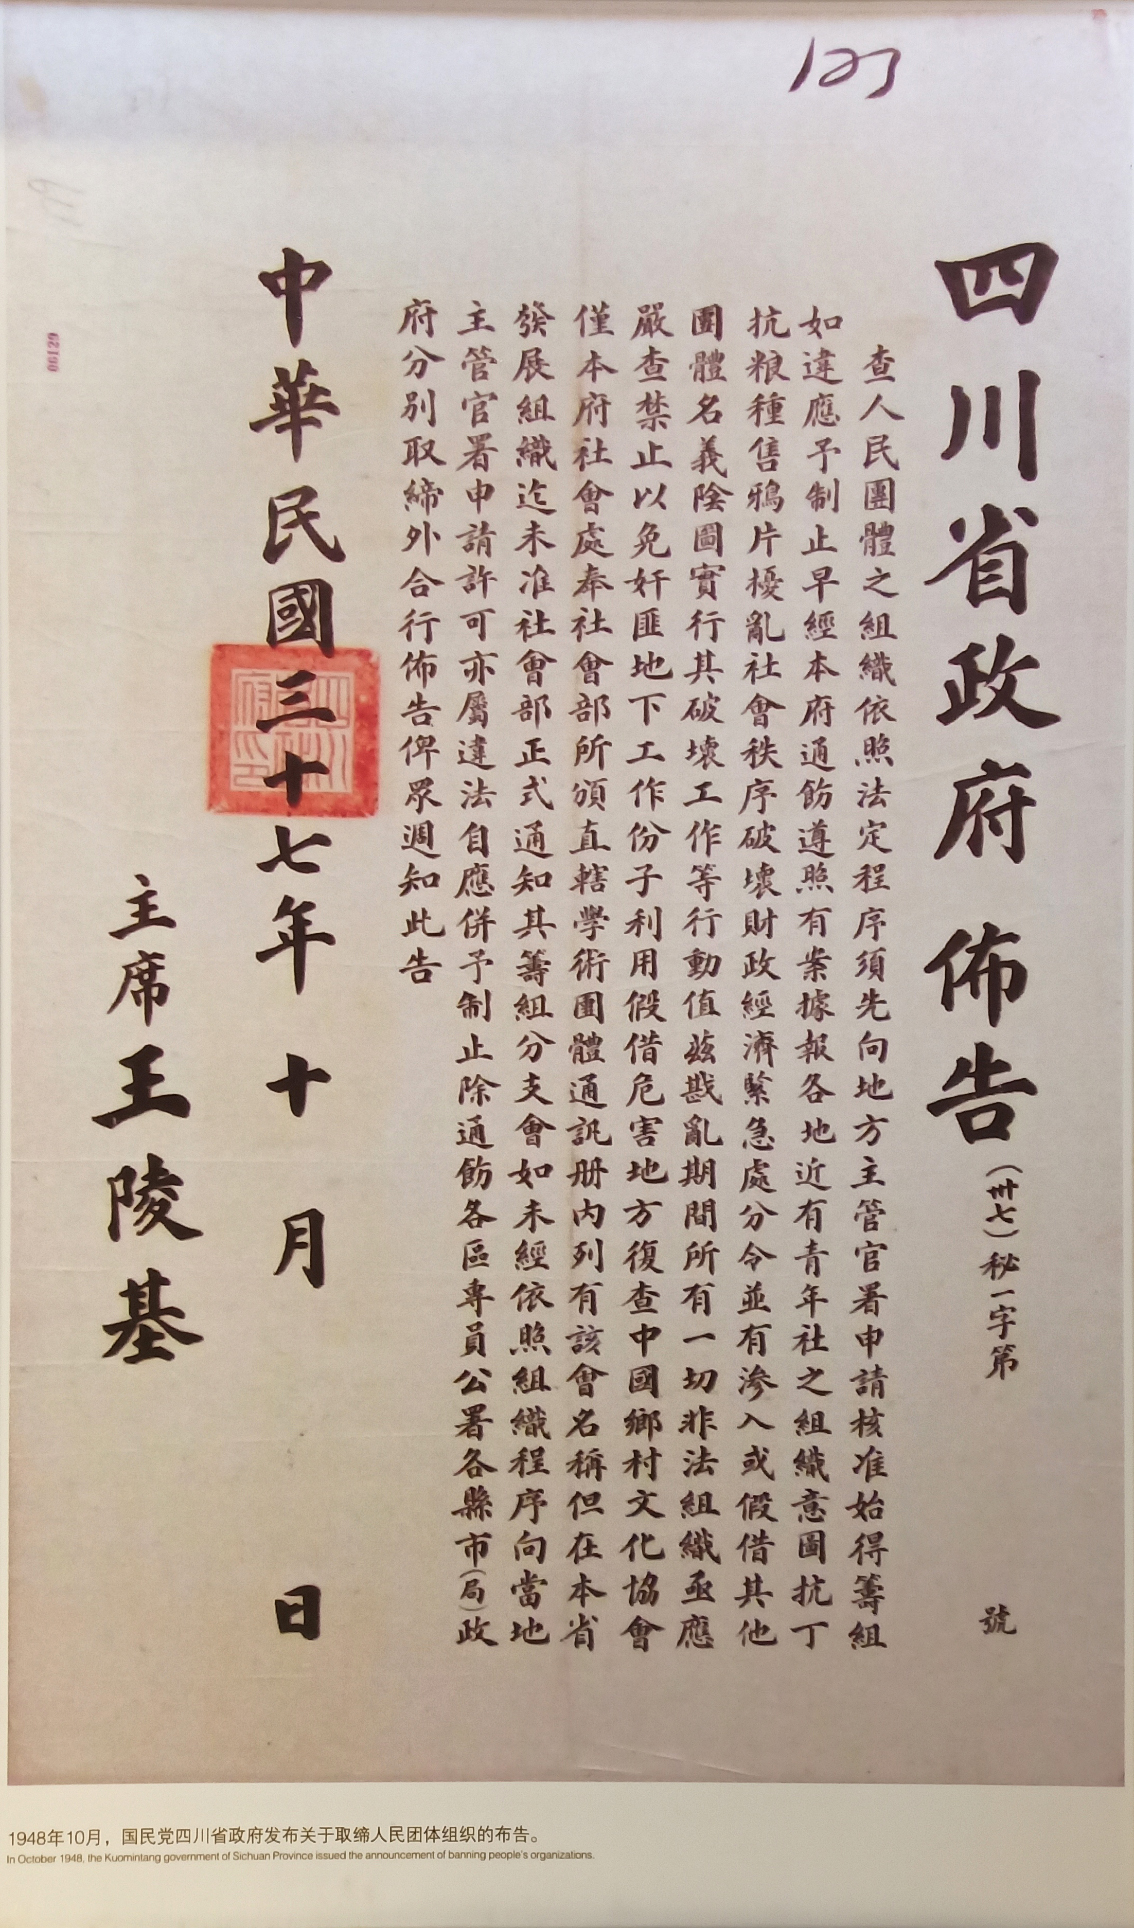 123
四川省政府佈告（卅七）秘一字第　號
查人民團體之組織依照法定程序須先向地方主管官署申請核准始得籌組
如違應予制止早經本府通飭遵照有案據報各地近有青年社之組織意圖抗丁
抗粮種售鴉片擾亂社會秩序破壞財政經濟緊急處分令並有滲入或假借其他
團體名義陰圖實行其破壞工作等行動值茲戡亂期間所有一切非法組織亟應
嚴查禁止以免奸匪地下工作份子利用假借危害地方復查中國鄉村文化協會
僅本府社會處奉社會部所頒直轄學術團體通訊册内列有該會名稱但在本省
發展組織迄未准社會部正式通知其籌組分支會如未經依照組織程序向當地
主管官署申請許可亦屬違法自應併予制止除通飭各區專員公署各縣市（局）政
府分别取締外合行佈告俾眾週知此告
中華民國三十七年十月　日
主席王陵基
06129
1948年10月，国民党四川省政府发布关于取缔人民团体组织的布告。
In October 1948, the Kuomintang government of Sichuan Province issued the announcement of banning people's organizations.